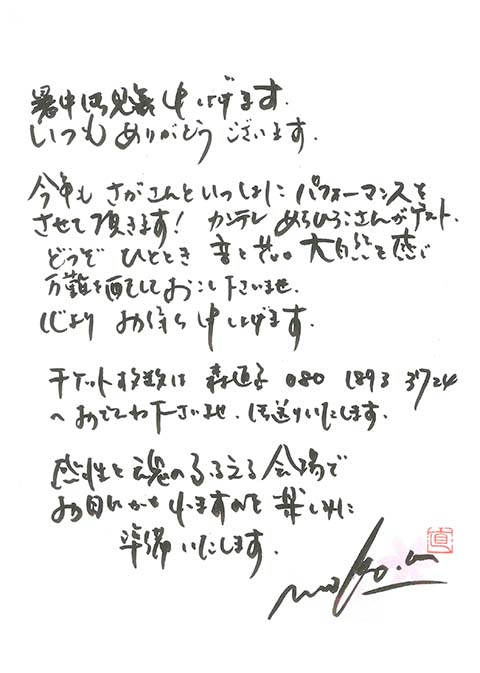 暑中お見舞申し上げます.
いつも ありがとう ございます.
今年も さがさんと いっしょに パフォーマンスを
させて頂きます! カンテレ あらひろこさんがゲスト.
どうぞ ひととき 音と共に 大自然を感じ
万難を画してしてお こし下さいませ.
心より お待ち申し上げます.
チケット枚数は 森直子 080 1893 3724
へ おでんわ下さいませ. お送りいたします.
感性と魂のふるえる会場で
お目にかかれますのを楽しみに
準備いたします.
直